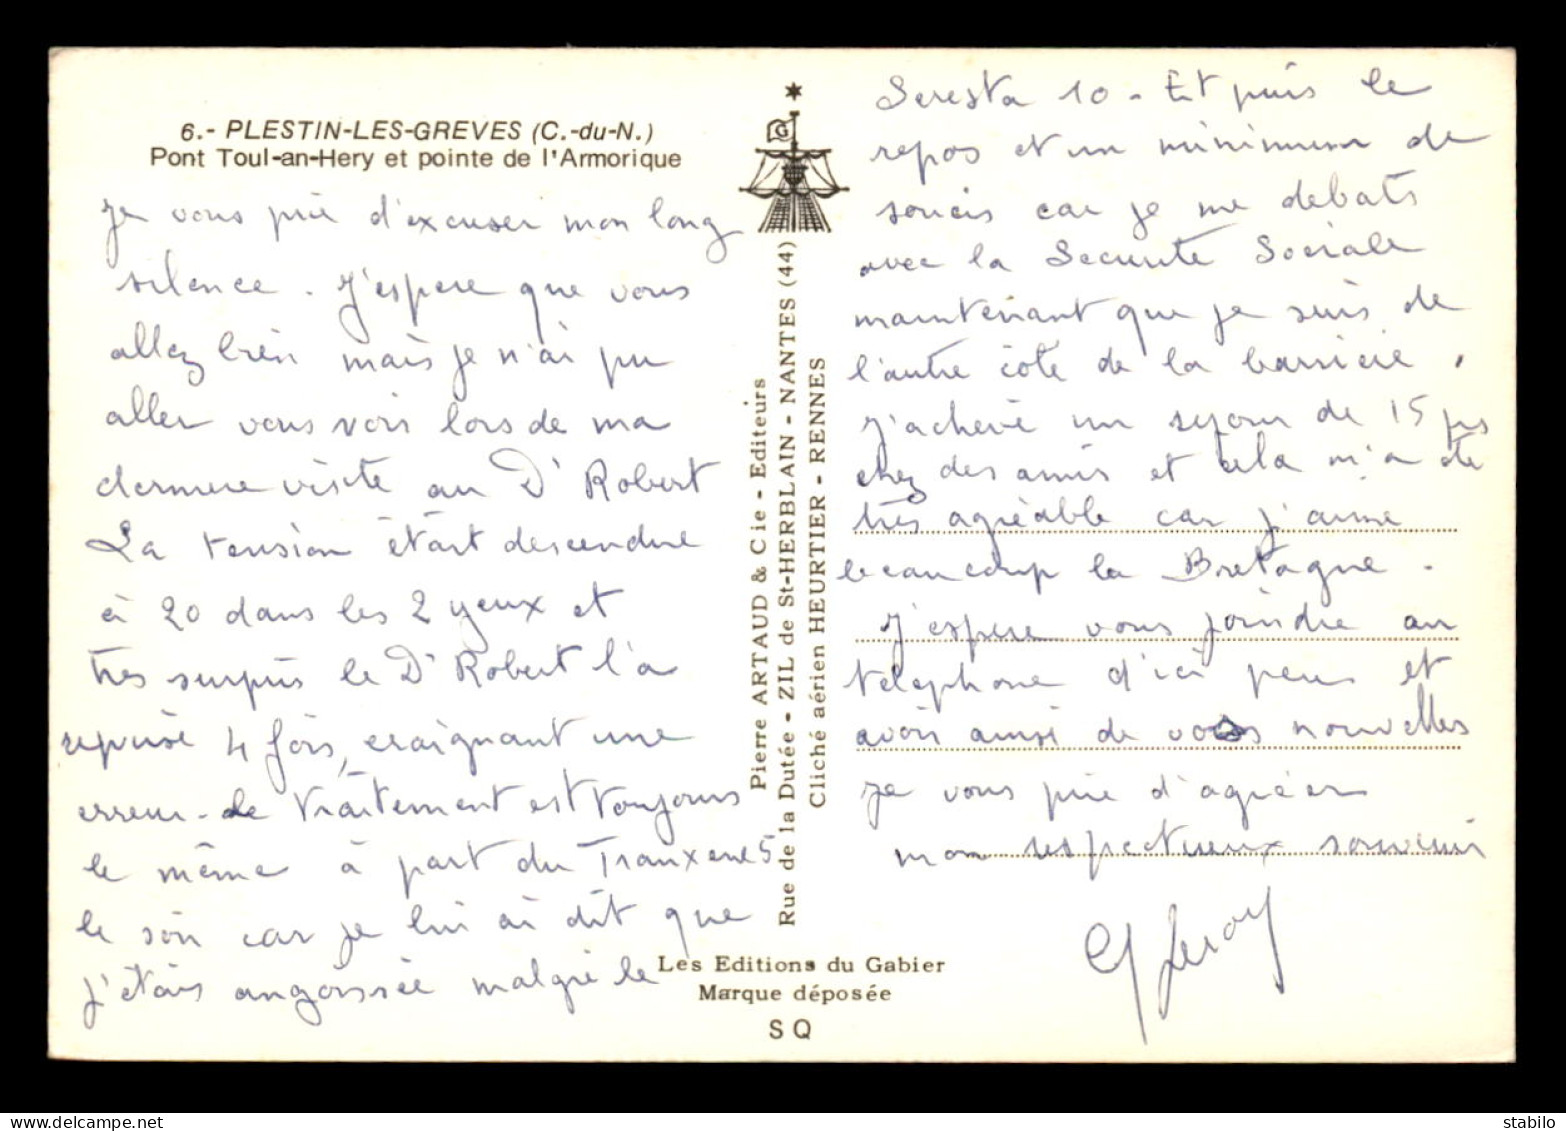 6.- PLESTIN-LES-GREVES (C.-du-N.)
Pont Toul-an-Hery et pointe de l'Armorique
Je vous prie d'excuser mon long
silence. J'espere que vous
allez bien mais je n'ai pu
aller vous voir lors de ma
derniere visite au Dr Robert
La tension était descendue
à 20 dans les 2 yeux et
très surpris le Dr Robert l'a
reprise 4 fois, craignant une
erreur. Le traitement est toujours
le même à part du Tranxene 5
le soir car je lui ai dit que
j'étais angoissée malgré le
Seresta 10 - Et puis le
repos et un minimum de
soucis car je me debats
avec la Securite Sociale
maintenant que je suis de
l'autre côté de la barrière.
J'achève un sejour de 15 jrs
chez des amis et cela m'a été
très agréable car j'aime
beaucoup la Bretagne.
J'espere vous joindre au
telephone d'ici peu et
avoir ainsi de vos nouvelles
Je vous prie d'agréer
mon respectueux souvenir
G Leroy
G
Pierre ARTAUD & Cie - Editeurs
Rue de la Dutée - ZIL de St-HERBLAIN - NANTES (44)
Cliché aérien HEURTIER - RENNES
Les Editions du Gabier
Marque déposée
SQ
the-stamp-collector
delcampe.net